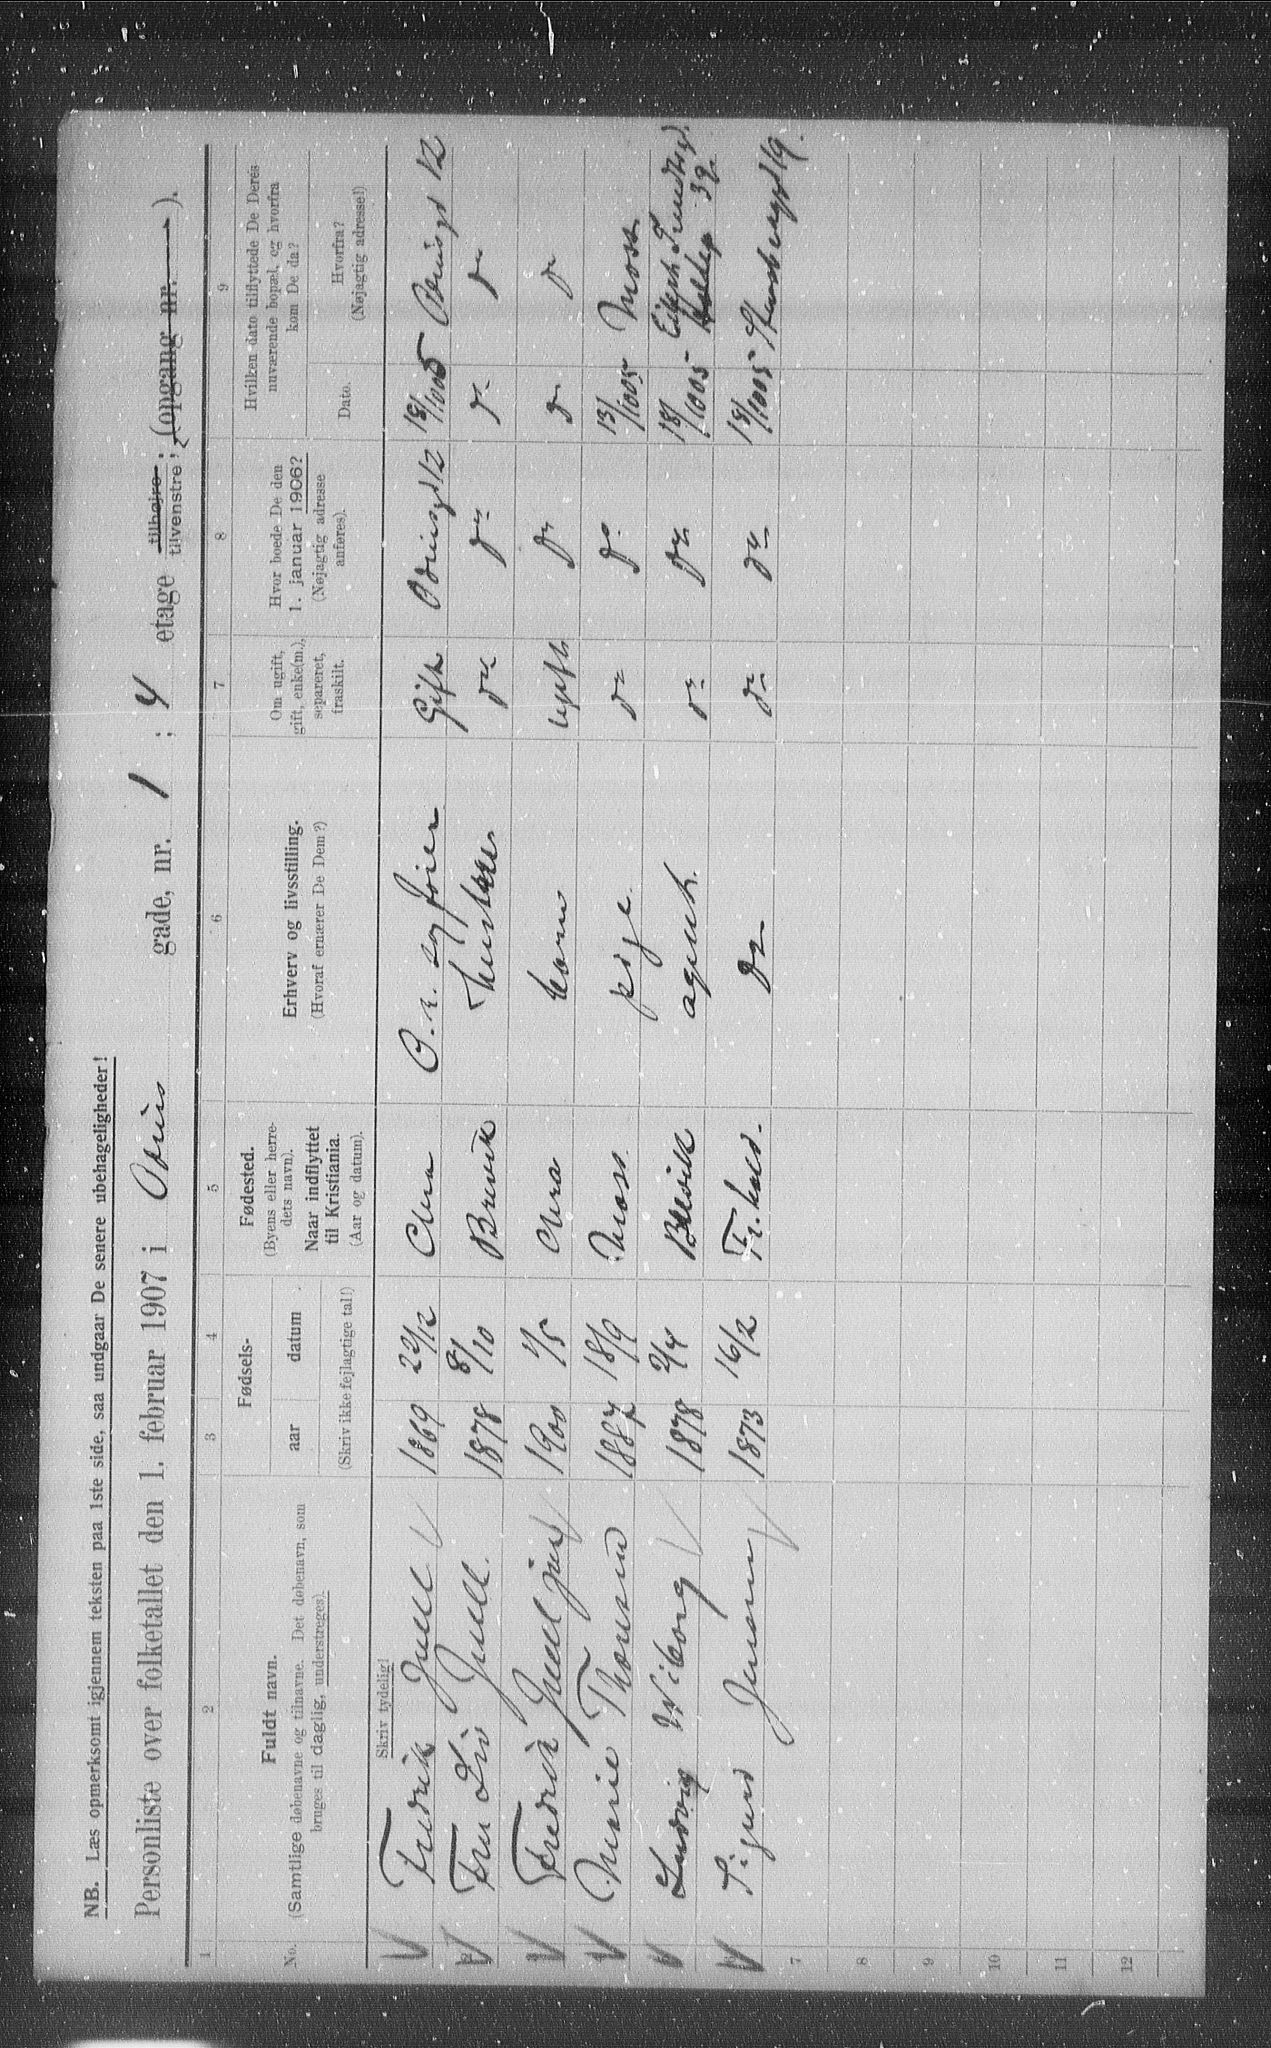 NB. Læs opmerksomt igjennem teksten paa 1ste side, saa undgaar De senere ubehageligheder!
Personliste over folketallet den 1. februar 1907 i Odins gade, nr. 1 ; 4 etage tilhøjre tilvenstre ; (opgang nr. ).
1 2 3 4 5 6 7 8 9
No.
Fuldt navn.
(Samtlige døbenavne og tilnavne. Det døbenavn, som
bruges til daglig, understreges).
Skriv tydelig!
Fødsels-
aar datum
(Skriv ikke fejlagtige tal!)
Fødested.
(Byens eller herre-
dets navn).
Naar indflyttet
til Kristiania.
(Aar og datum).
Erhverv og livsstilling.
(Hvoraf ernærer De Dem?)
Om ugift,
gift, enke(m.),
separeret,
fraskilt.
Hvor boede De den
1. januar 1906?
(Nøjagtig adresse
anføres).
Hvilken dato tilflyttede De Deres
nuværende bopæl, og hvorfra
kom De da?
Dato.
Hvorfra?
(Nøjagtig adresse!)
Fredrik Juell 1869 22/12 Chra Gift Odinsgd 12 Odinsgd 12
Fru Liv Juell. 1878 8/10 Brevik Hustru do do do do
Fredrik Juell jun 1900 1/5 Chra barn ugift do do do
Marie Thorsen 1887 18/9 Moss pige do do 13/10 05 Moss
Ludvig Wiborg 1878 2/4 Brevik agent. do do 18/10 05 39
Sigurd Jensen 1873 16/2 Fr.hald. do do do 18/10 05
7
8
9
10
11
12